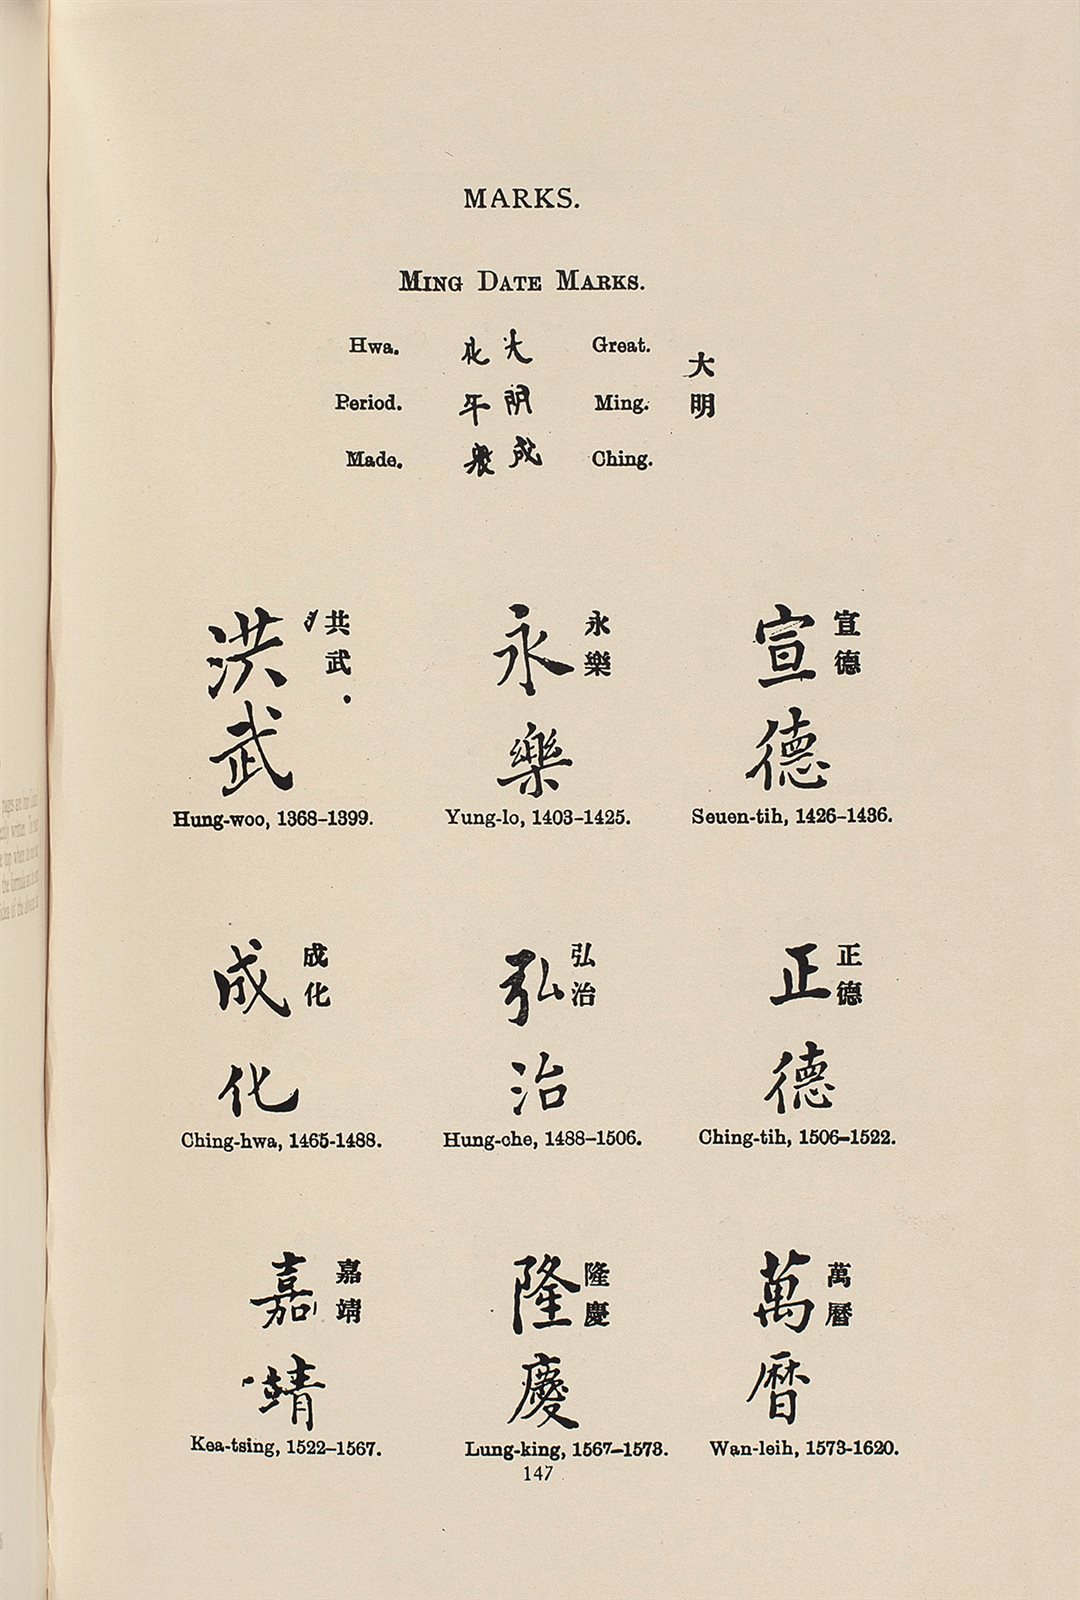 MARKS.
MING DATE MARKS.
Hwa. 化 大 Great. 大
Period. 年 明 Ming. 明
Made. 製 成 Ching.
洪武 洪武
Hung-woo, 1368-1399.
永樂 永樂
Yung-lo, 1403-1425.
宣德 宣德
Seuen-tih, 1426-1436.
成化 成化
Ching-hwa, 1465-1488.
弘治 弘治
Hung-che, 1488-1506.
正德 正德
Ching-tih, 1506-1522.
嘉靖 嘉靖
Kea-tsing, 1522-1567.
隆慶 隆慶
Lung-king, 1567-1573.
萬曆 萬曆
Wan-leih, 1573-1620.
147